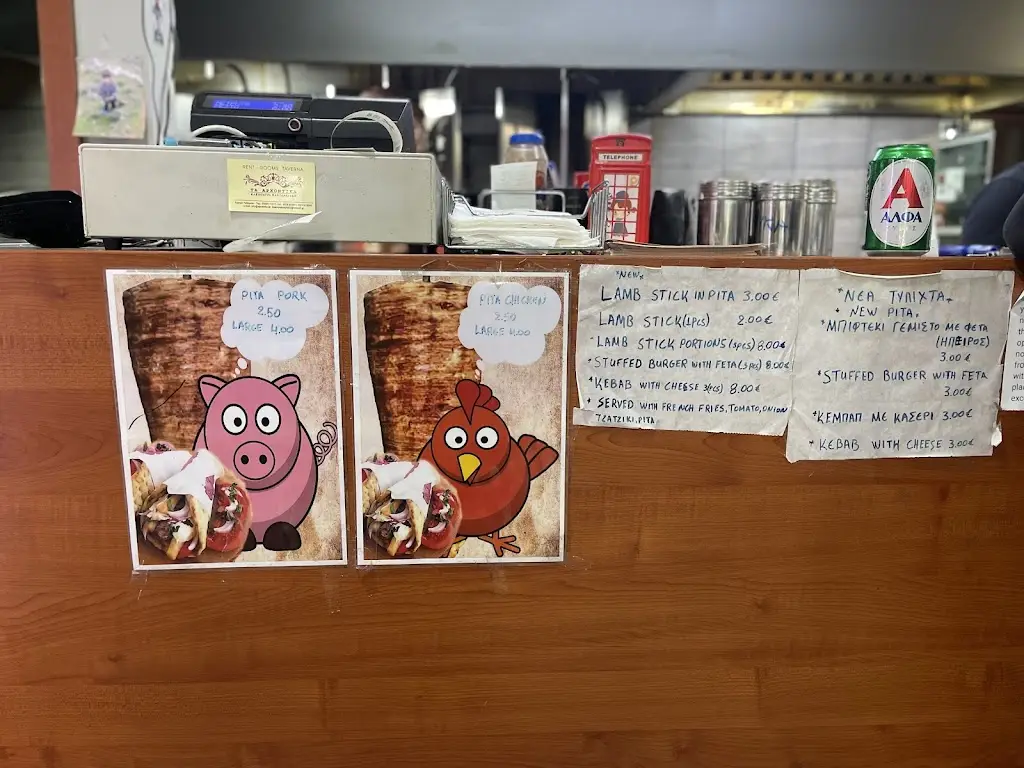 RENT - ROOMS TAVERNA
TELEPHONE
ΑΛΦΑ
PITA PORK
2.50
LARGE 4,00
PITA CHICKEN
2.50
LARGE 4.00
*NEW*
LAMB STICK IN PITA 3.00€
LAMB STICK (1pcs) 2.00€
LAMB STICK PORTIONS (5pcs) 8.00€
* STUFFED BURGER WITH FETA (3pcs) 8.00€
* KEBAB WITH CHEESE 3(pcs) 8.00€
* SERVED WITH FRENCH FRIES, TOMATO, ONION
TZATZIKI, PITA
* ΝΕΑ ΤΥΛΙΧΤΑ
* NEW PITA.
* ΜΠΙΦΤΕΚΙ ΓΕΜΙΣΤΟ ΜΕ ΦΕΤΑ
(ΗΠΕΙΡΟΣ)
3.00€
* STUFFED BURGER WITH FETA
3.00€
* ΚΕΜΠΑΠ ΜΕ ΚΑΣΕΡΙ 3.00€
* KEBAB WITH CHEESE 3.00€